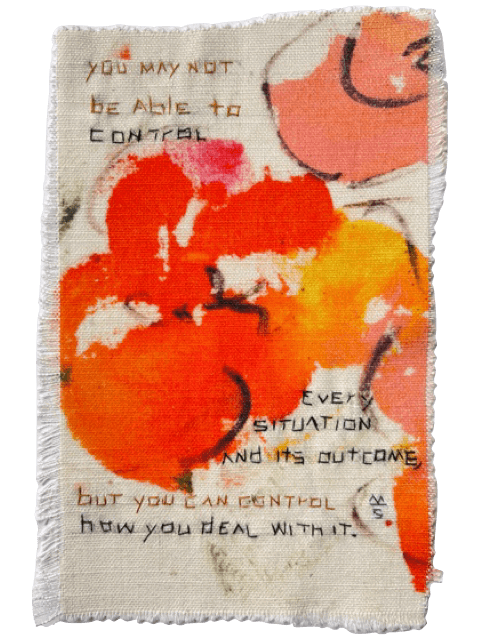 YOU MAY NOT
bE Able to
CONTROL
EVERY
SITUATION
AND ITS OUTCOME,
but YOU CAN CONTROL
how YOU dEAL WITH IT.
MS